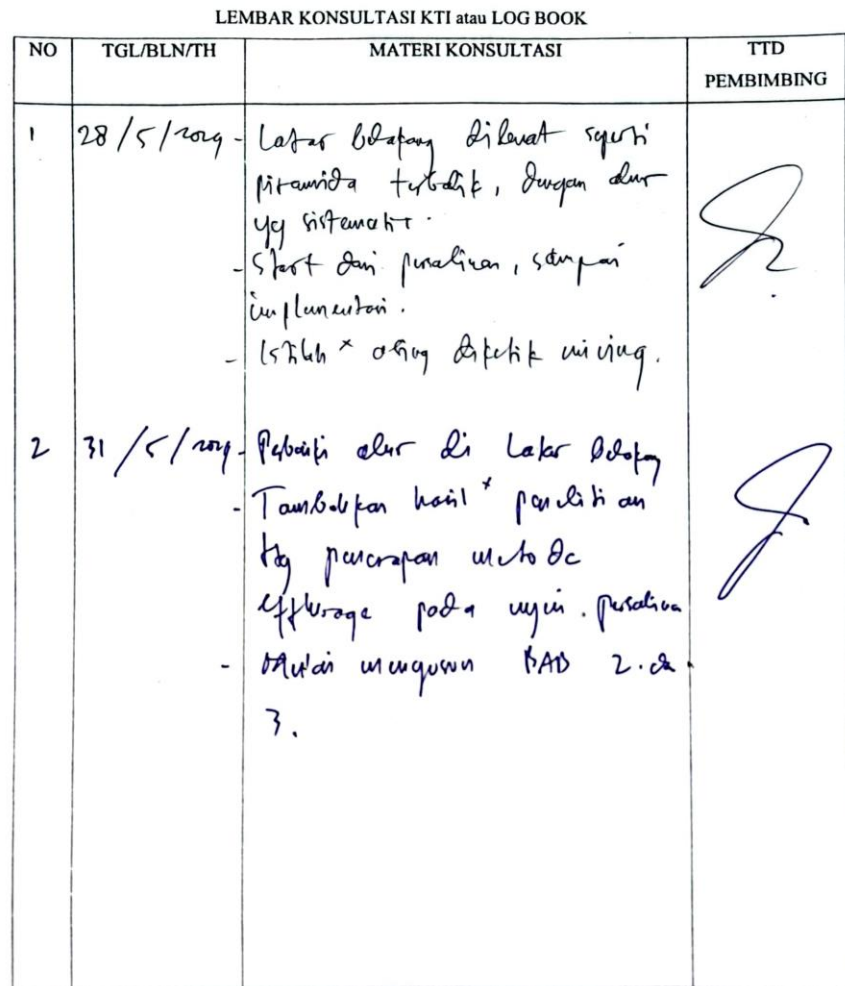 LEMBAR KONSULTASI KTI atau LOG BOOK
NO TGL/BLN/TH MATERI KONSULTASI TTD
PEMBIMBING
1 28/5/2024 - Latar Belakang dibuat seperti
piramida terbalik, dengan alur
yg sistematis.
- Start dari persalinan, sampai
implementasi.
- Istilah x asing diketik miring.
2 31/5/2024 - Perbaiki alur di Latar Belakang
- Tambahkan hasil x penelitian
ttg penerapan metode
effleurage pada nyeri persalinan
- Mulai menyusun BAB 2. dan
3.